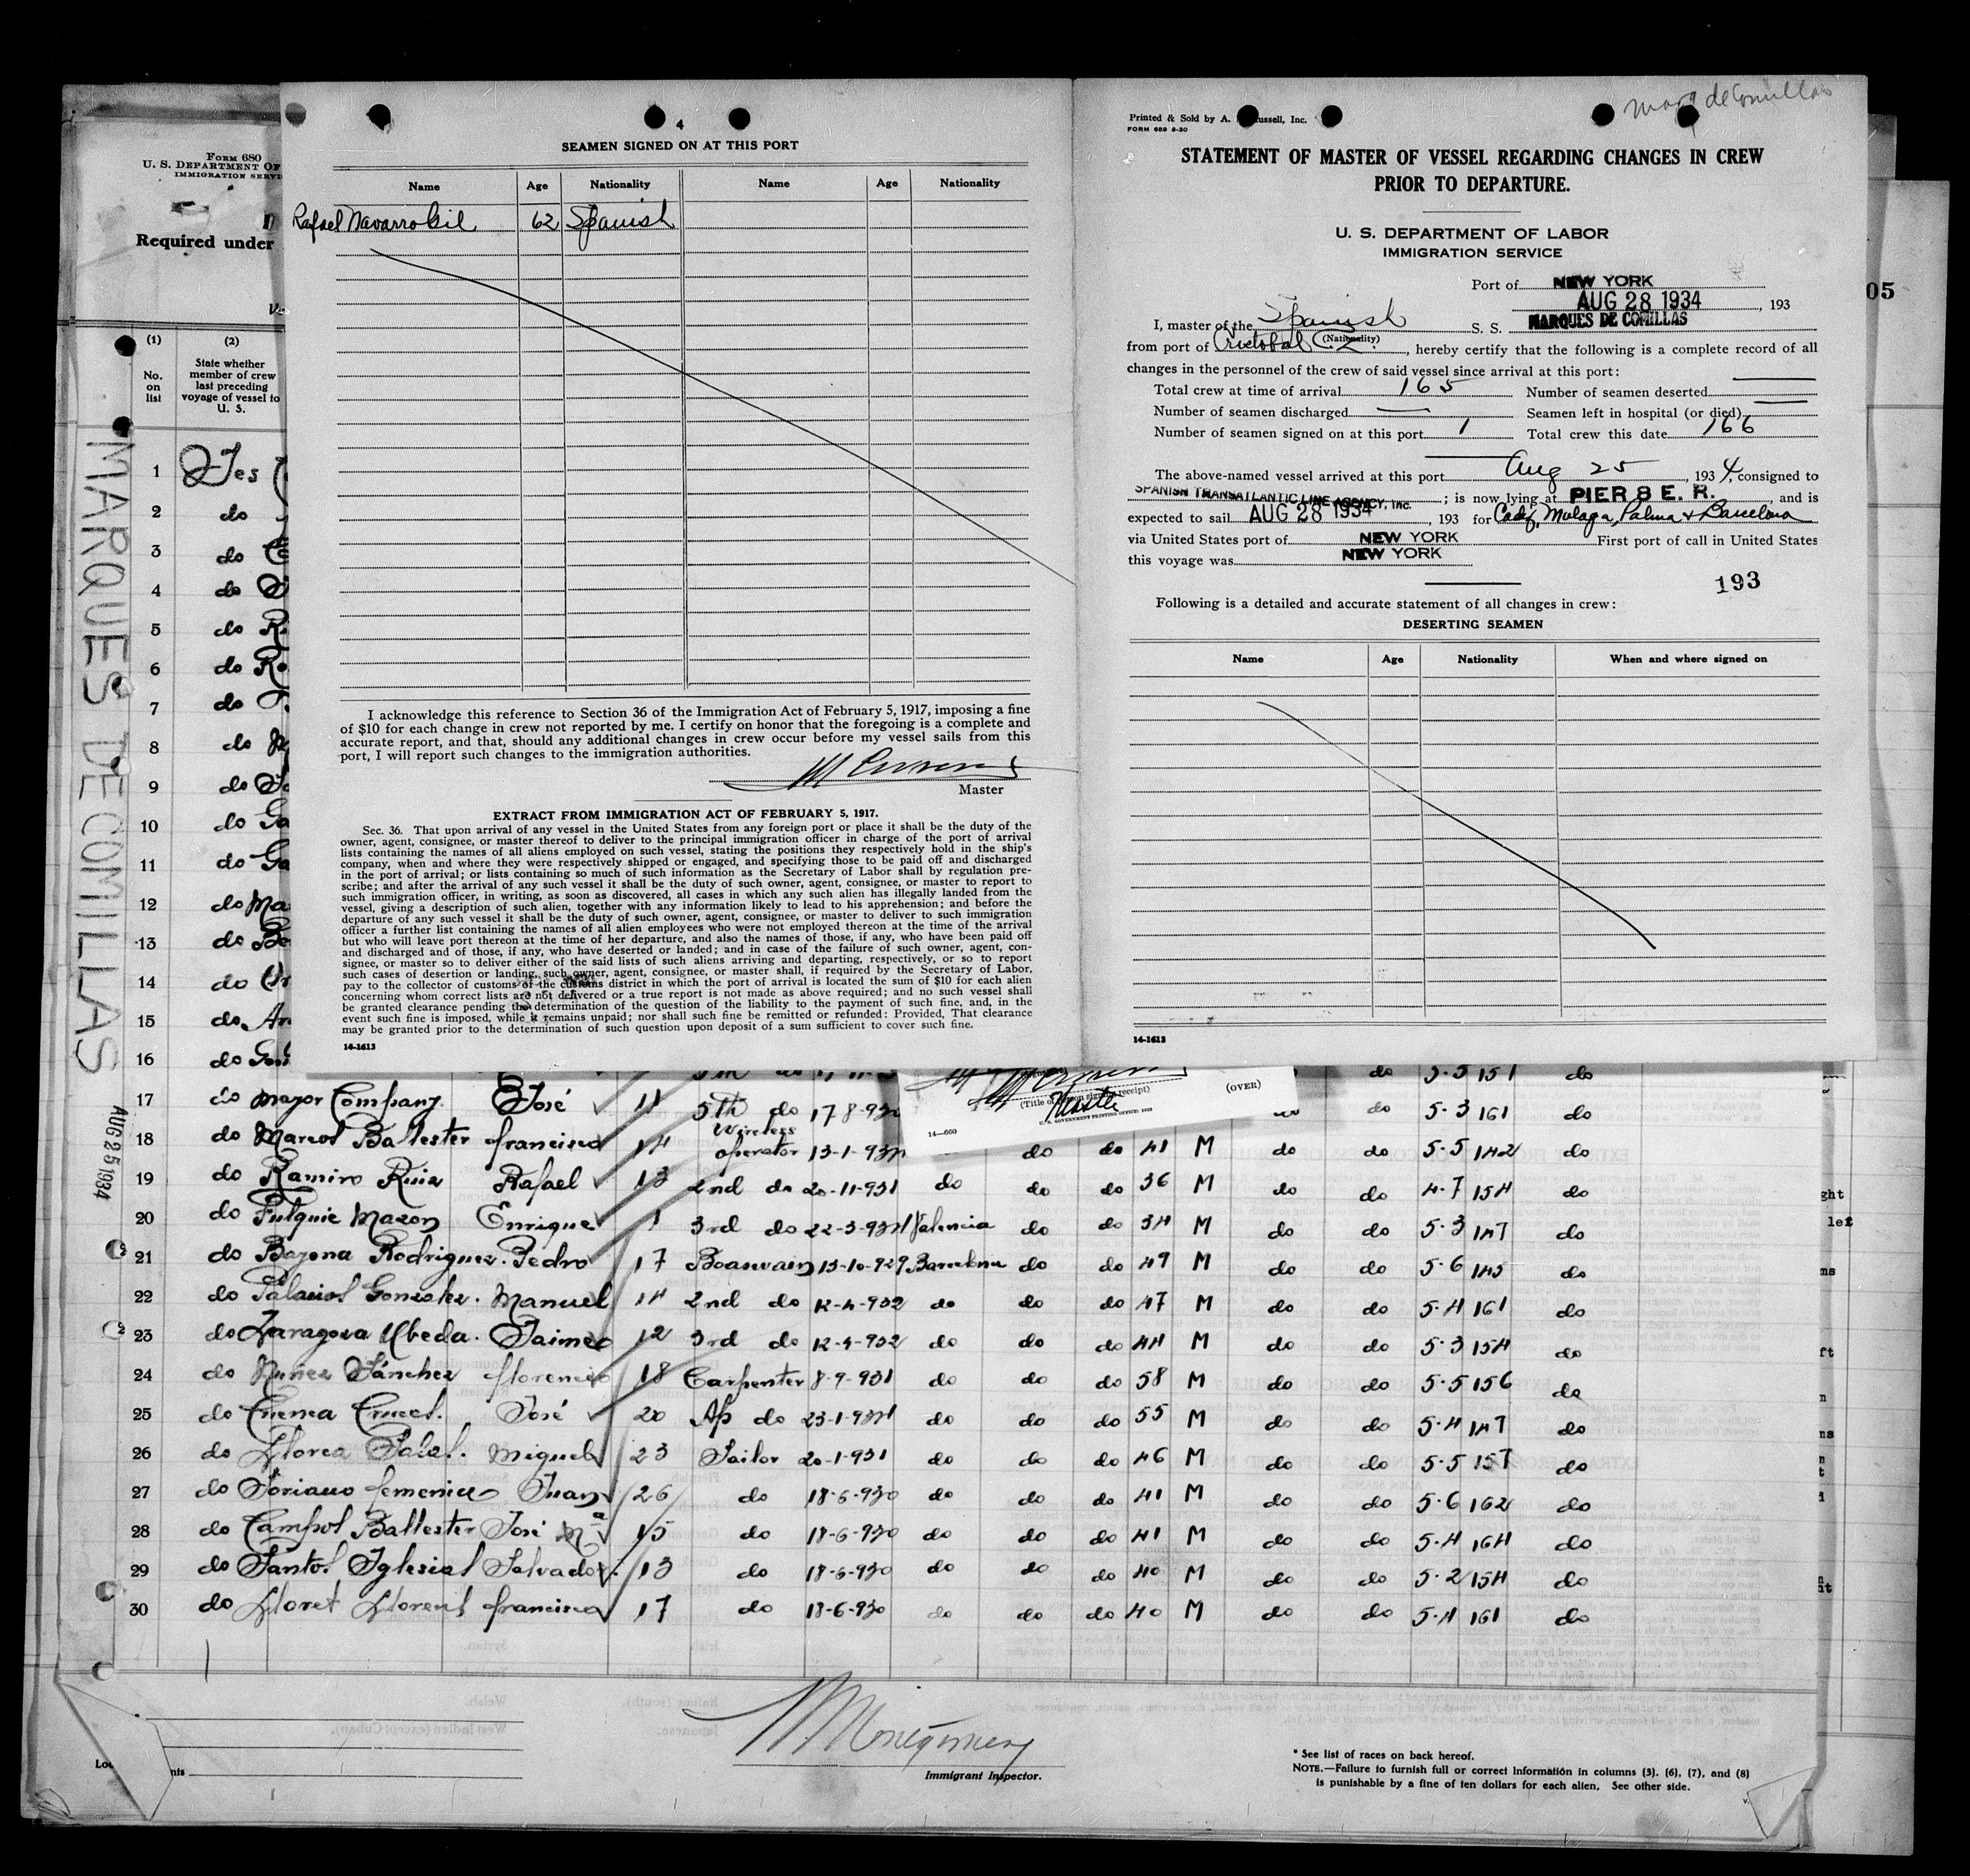 4
SEAMEN SIGNED ON AT THIS PORT
Name Age Nationality Name Age Nationality
Rafael Navarro Gil 62 Spanish
I acknowledge this reference to Section 36 of the Immigration Act of February 5, 1917, imposing a fine
of $10 for each change in crew not reported by me. I certify on honor that the foregoing is a complete and
accurate report, and that, should any additional changes in crew occur before my vessel sails from this
port, I will report such changes to the immigration authorities.
Master
EXTRACT FROM IMMIGRATION ACT OF FEBRUARY 5, 1917.
Sec. 36. That upon arrival of any vessel in the United States from any foreign port or place it shall be the duty of the
owner, agent, consignee, or master thereof to deliver to the principal immigration officer in charge of the port of arrival
lists containing the names of all aliens employed on such vessel, stating the positions they respectively hold in the ship's
company, when and where they were respectively shipped or engaged, and specifying those to be paid off and discharged
in the port of arrival; or lists containing so much of such information as the Secretary of Labor shall by regulation pre-
scribe; and after the arrival of any such vessel it shall be the duty of such owner, agent, consignee, or master to report to
such immigration officer, in writing, as soon as discovered, all cases in which any such alien has illegally landed from the
vessel, giving a description of such alien, together with any information likely to lead to his apprehension; and before the
departure of any such vessel it shall be the duty of such owner, agent, consignee, or master to deliver to such immigration
officer a further list containing the names of all alien employees who were not employed thereon at the time of the arrival
but who will leave port thereon at the time of her departure, and also the names of those, if any, who have been paid off
and discharged and of those, if any, who have deserted or landed; and in case of the failure of such owner, agent, con-
signee, or master so to deliver either of the said lists of such aliens arriving and departing, respectively, or so to report
such cases of desertion or landing, such owner, agent, consignee, or master shall, if required by the Secretary of Labor,
pay to the collector of customs of the customs district in which the port of arrival is located the sum of $10 for each alien
concerning whom correct lists are not delivered or a true report is not made as above required; and no such vessel shall
be granted clearance pending the determination of the question of the liability to the payment of such fine, and, in the
event such fine is imposed, while it remains unpaid; nor shall such fine be remitted or refunded: Provided, That clearance
may be granted prior to the determination of such question upon deposit of a sum sufficient to cover such fine.
14-1613
Marq de Comillas
Printed & Sold by A. ussell, Inc.
FORM 689 8-30
STATEMENT OF MASTER OF VESSEL REGARDING CHANGES IN CREW
PRIOR TO DEPARTURE.
U. S. DEPARTMENT OF LABOR
IMMIGRATION SERVICE
Port of NEW YORK
AUG 28 1934, 193
I, master of the Spanish S. S. MARQUES DE COMILLAS
(Nationality)
from port of Cristobal C.Z., hereby certify that the following is a complete record of all
changes in the personnel of the crew of said vessel since arrival at this port:
Total crew at time of arrival 165 Number of seamen deserted —
Number of seamen discharged — Seamen left in hospital (or died) —
Number of seamen signed on at this port 1 Total crew this date 166
The above-named vessel arrived at this port Aug 25, 1934, consigned to
SPANISH TRANSATLANTIC LINE AGENCY, Inc.; is now lying at PIER 8 E. R., and is
expected to sail AUG 28 1934, 193 for Cadiz, Malaga, Palma & Barcelona
via United States port of NEW YORK First port of call in United States
this voyage was NEW YORK
193
Following is a detailed and accurate statement of all changes in crew:
DESERTING SEAMEN
Name Age Nationality When and where signed on
14-1613
FORM 680
U. S. DEPARTMENT OF
IMMIGRATION SERVI
Required under
05
(1) (2)
No. on list
State whether
member of crew
last preceding
voyage of vessel to
U. S.
MARQUES DE COMILLAS
AUG 25 1934
1 Yes
2 do
3 do
4 do
5 do
6 do
7 do
8 do
9 do
10 do
11 do
12 do
13 do
14 do
15 do
16 do do 5-5 151 do
17 do Mayor Company José 11 5th do 17-8-930 do 5-3 161 do
18 do Marcos Ballester Francisco 14 Wireless operator 13-1-934 do do 41 M do do 5-5 142 do
19 do Ramiro Ruiz Rafael 13 2nd do 20-11-931 do do do 36 M do do 4-7 154 do
20 do Fulquie Mazon Enrique 1 3rd do 22-3-934 Valencia do do 34 M do do 5-3 147 do
21 do Bayona Rodriguez Pedro 17 Boaswain 13-10-929 Barcelona do do 49 M do do 5-6 145 do
22 do Palacios Gonzalez Manuel 14 2nd do 12-4-932 do do do 47 M do do 5-4 161 do
23 do Zaragoza Ubeda Jaime 12 3rd do 12-4-932 do do do 44 M do do 5-3 154 do
24 do Nuñez Sánchez Florencio 18 Carpenter 8-9-931 do do do 58 M do do 5-5 156 do
25 do José 20 Ap do 23-1-934 do do do 55 M do do 5-4 147 do
26 do Llorca Miguel 23 Sailor 20-1-931 do do do 46 M do do 5-5 157 do
27 do Soriano Juan 26 do 18-6-930 do do do 41 M do do 5-6 162 do
28 do Campos Ballester José Mª 15 do 18-6-930 do do do 41 M do do 5-4 164 do
29 do Santos Iglesias Salvador 13 do 18-6-930 do do do 40 M do do 5-2 154 do
30 do Lloret Llorens Francisco 17 do 18-6-930 do do do 40 M do do 5-4 161 do
Master
(OVER)
14—660
U. S. GOVERNMENT PRINTING OFFICE
Montgomery
Immigrant Inspector.
* See list of races on back hereof.
NOTE.—Failure to furnish full or correct information in columns (3), (6), (7), and (8)
is punishable by a fine of ten dollars for each alien. See other side.